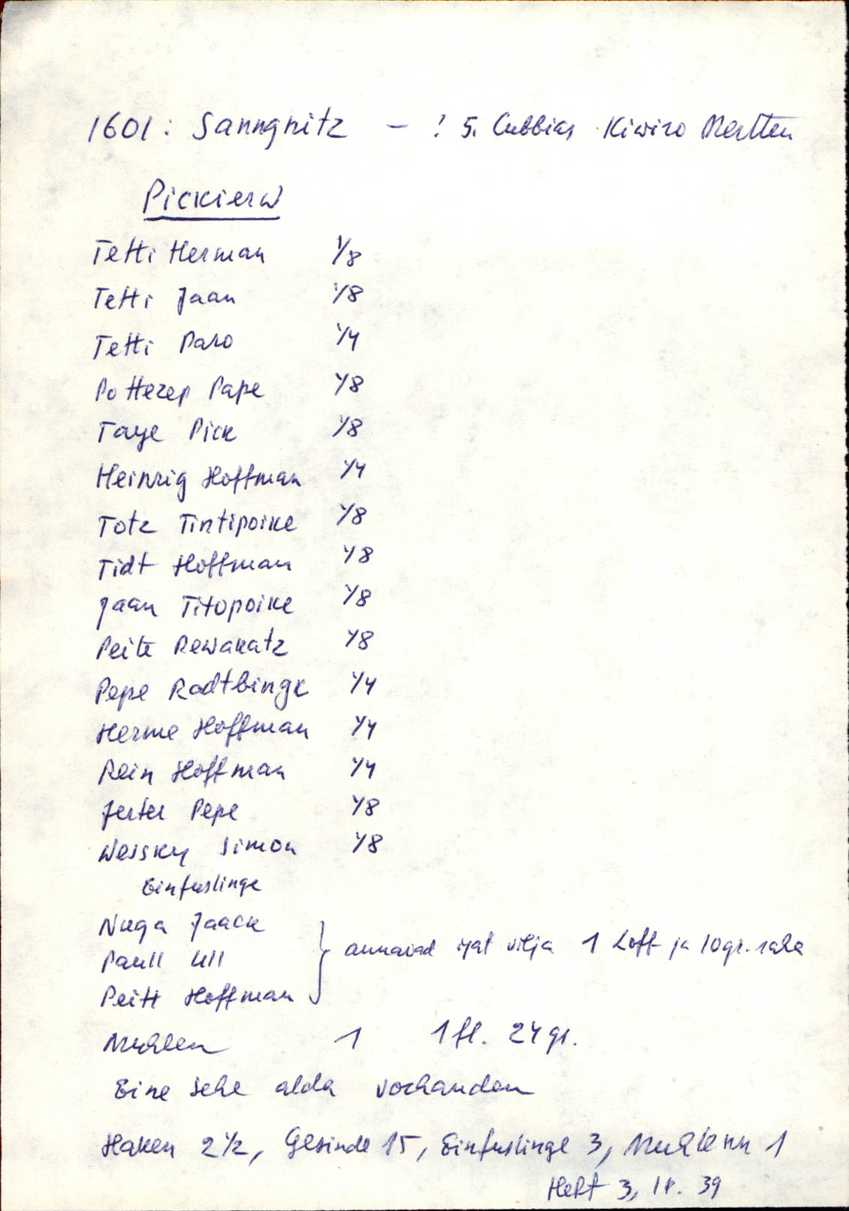 1601: Sanngnitz - ! 5. Cubbias Kiwiro Mertten
Pickierw
Tetti Herman 1/8
Tetti Jaan 1/8
Tetti Paro 1/4
Pottezep Pape 1/8
Taye Pick 1/8
Heinrig Hoffman 1/4
Totz Tintipoike 1/8
Tidt Hoffman 1/8
Jaan Titopoike 1/8
Peitz Rewakatz 1/8
Pepe Radtbingk 1/4
Herme Hoffman 1/4
Rein Hoffman 1/4
Pepe 1/8
Wessky Simon 1/8
Einfuslinge
Nuga Jaack
Paull Ull } annavad igat vilja 1 Loff ja 10 gr. raha
Peitt Hoffman
Muhlen 1 1 fl. 24 gr.
Eine sehe alda vorhanden
Haken 2 1/2, Gesinde 15, Einfuslinge 3, Muhlenn 1
Heft 3, lk. 39